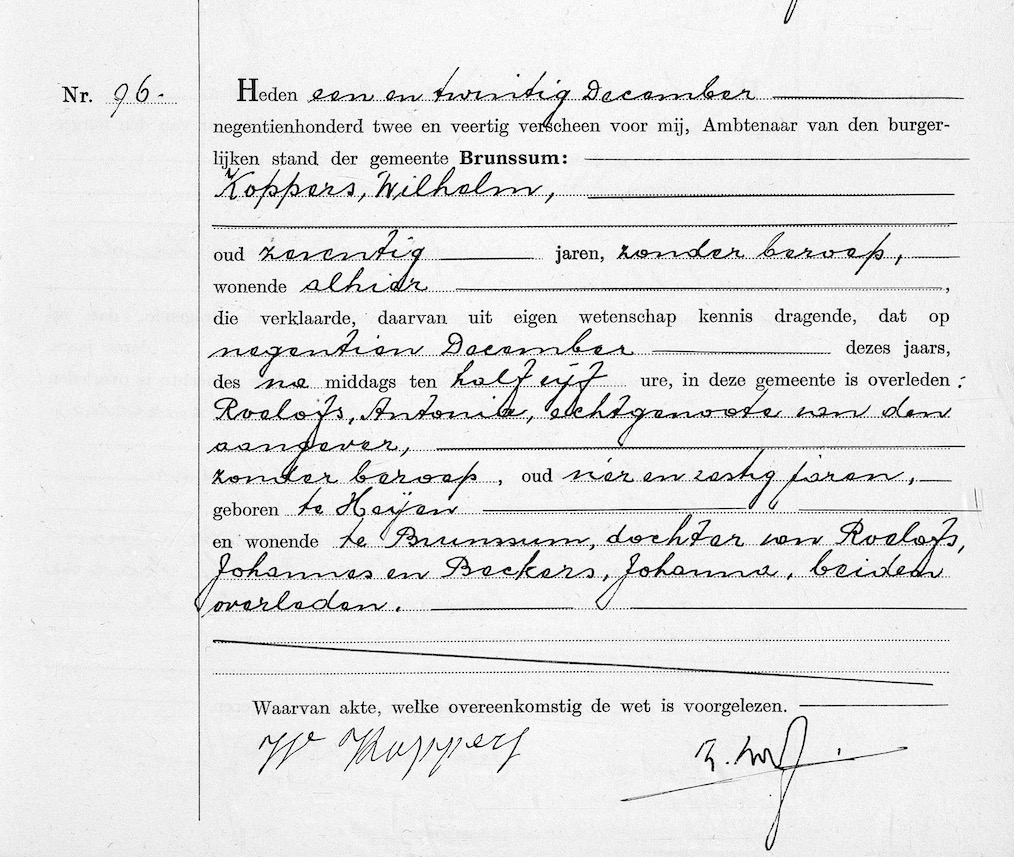 Nr. 96. Heden een en twintig December
negentienhonderd twee en veertig verscheen voor mij, Ambtenaar van den burger-
lijken stand der gemeente Brunssum:
Koppers, Wilhelm,
oud zeventig jaren, zonder beroep,
wonende alhier,
die verklaarde, daarvan uit eigen wetenschap kennis dragende, dat op
negentien December dezes jaars,
des na middags ten half vijf ure, in deze gemeente is overleden:
Roelofs, Antonia, echtgenoote van den
aangever,
zonder beroep, oud vier en zestig jaren,
geboren te Heijen
en wonende te Brunssum, dochter van Roelofs,
Johannes en Beckers, Johanna, beiden
overleden.
Waarvan akte, welke overeenkomstig de wet is voorgelezen.
W Koppers